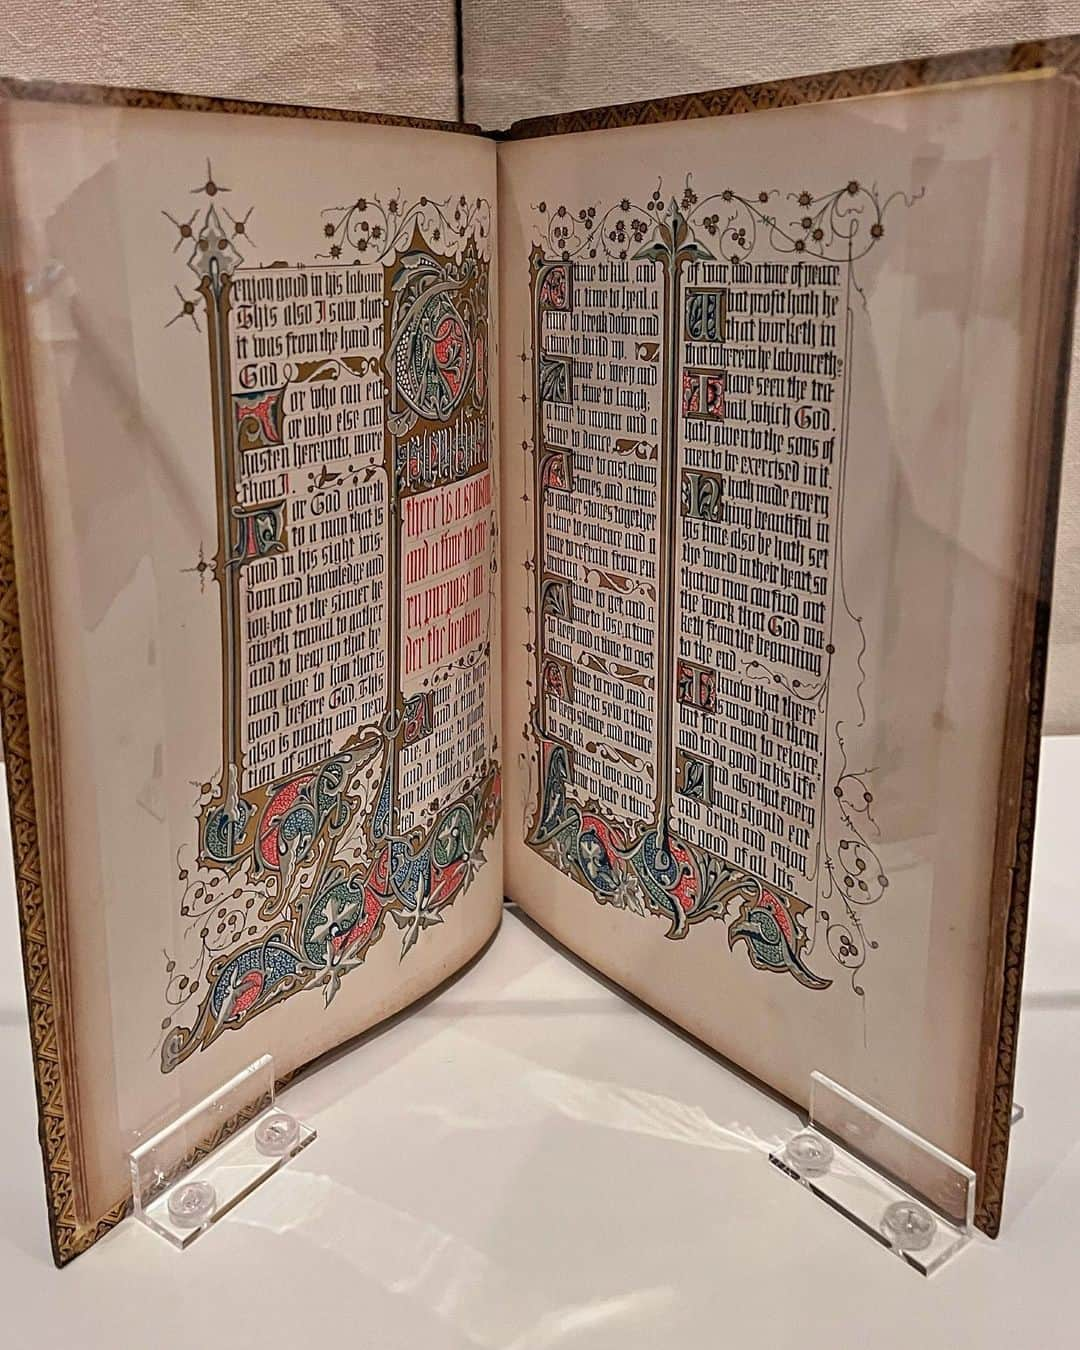 enjoy good in his labour
This also I saw, that
it was from the hand of
God.
For who can eat
or who else can
hasten hereunto, more
than I.
For God giveth
to a man that is
good in his sight wis
dom and knowledge and
joy: but to the sinner he
giveth travail to gather
and to heap up that he
may give to him that is
good before God. This
also is vanity and vexa
tion of spirit.
To
everything
there is a season
and a time to eve
ry purpose un
der the heaven
A time to be born
and a time to
die: a time to plant
and a time to pluck
up that which is plan
ted
A time to kill, and
a time to heal, a
time to break down, and
a time to build up.
A time to weep and
a time to laugh,
a time to mourn and a
time to dance.
A time to cast away
stones, and a time
to gather stones together
a time to embrace and a
time to refrain from em
bracing
A time to get and a
time to lose, a time
to keep and a time to cast
away.
A time to rend and a
time to sew a time
to keep silence, and a time
to speak.
A time to love and a
time to hate a time
of war and a time of peace.
What profit hath he
that worketh in
that wherein he laboureth?
I have seen the tra
vail, which God
hath given to the sons of
men to be exercised in it
He hath made every
thing beautiful in
his time also he hath set
the world in their heart so
that no man can find out
the work that God ma
keth from the beginning
to the end.
I know that there
is no good in them
but for a man to rejoice,
and to do good in his life
And also that every
man should eat
and drink and enjoy
the good of all his